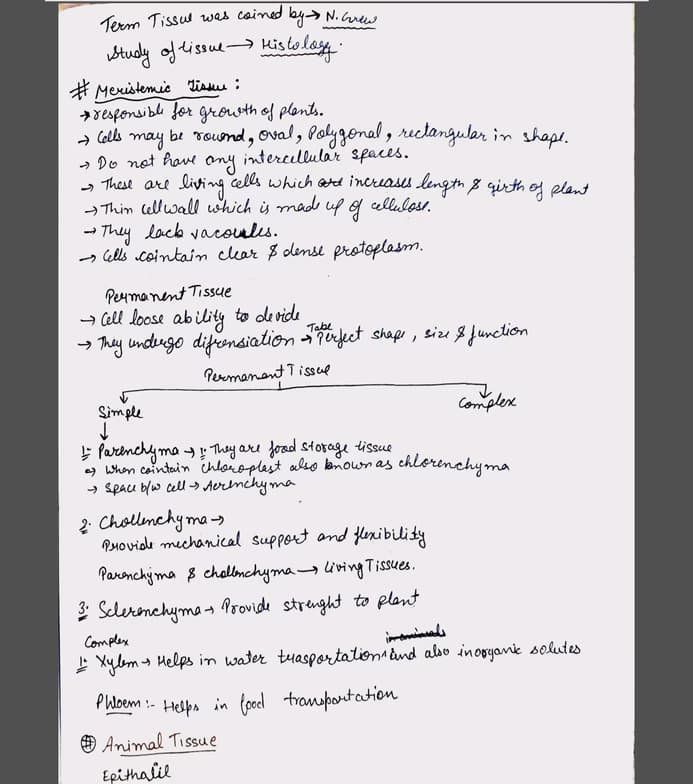 Term Tissue was coined by → N. Grew
Study of tissue → Histology.
# Meristemic Tissue :
→ responsible for growth of plants.
→ Cells may be round, oval, Polygonal, rectangular in shape.
→ Do not have any intercellular spaces.
→ These are living cells which increases length & girth of plant
→ Thin cellwall which is made up of cellulose.
→ They lack vacoules.
→ Cells cointain clear & dense protoplasm.
Permanent Tissue
→ Cell loose ability to devide
→ They undergo difrensiation → Take Perfect shape, size & function
Permanant Tissue
Simple
Complex
1:- Parenchyma → 1:- They are food storage tissue
→ When cointain chloroplast also known as chlorenchyma
→ Space b/w cell → Aerenchyma
2. Chollenchyma →
Provide mechanical support and flexibility
Parenchyma & chollenchyma → Living Tissues.
3. Sclerenchyma → Provide strenght to plant
Complex
1:- Xylem → Helps in water trasportation and also inorganic solutes
Phloem :- Helps in food transportation
# Animal Tissue